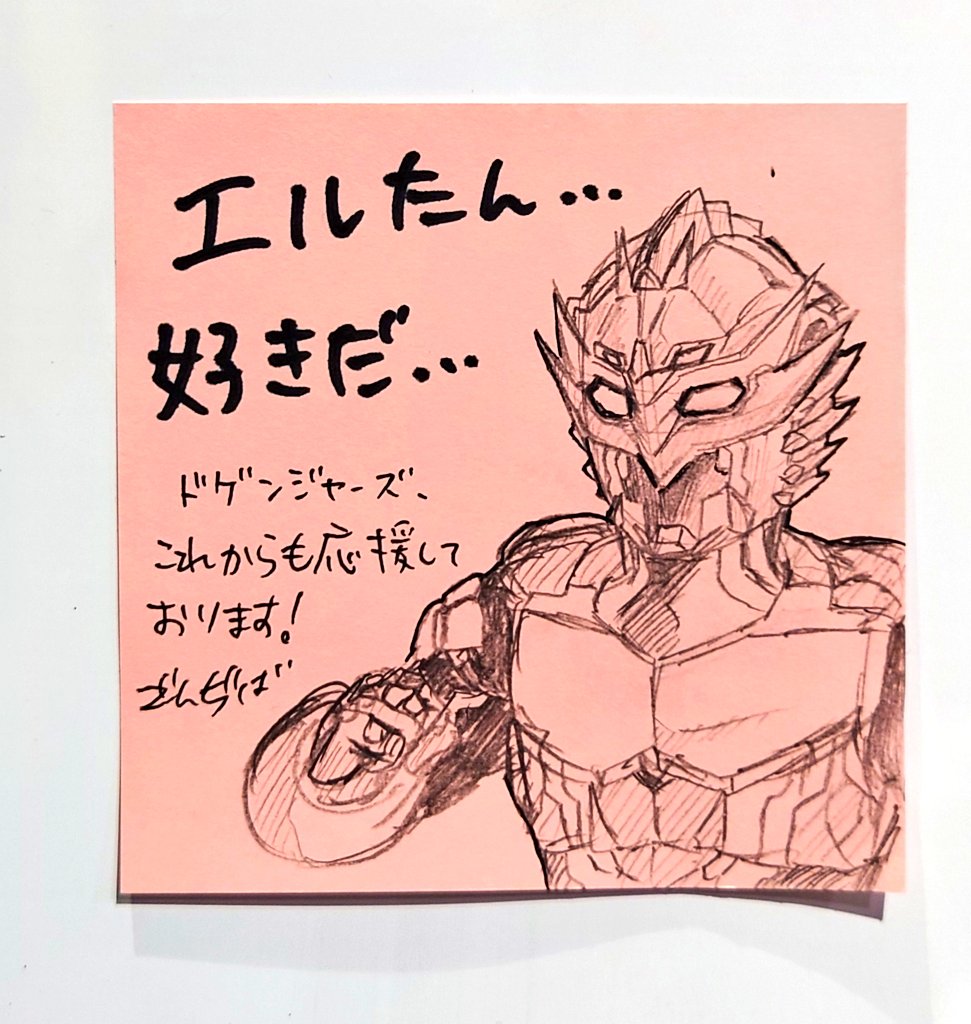 エルたん…
好きだ…
ドゲンジャーズ、
これからも応援して
おります!